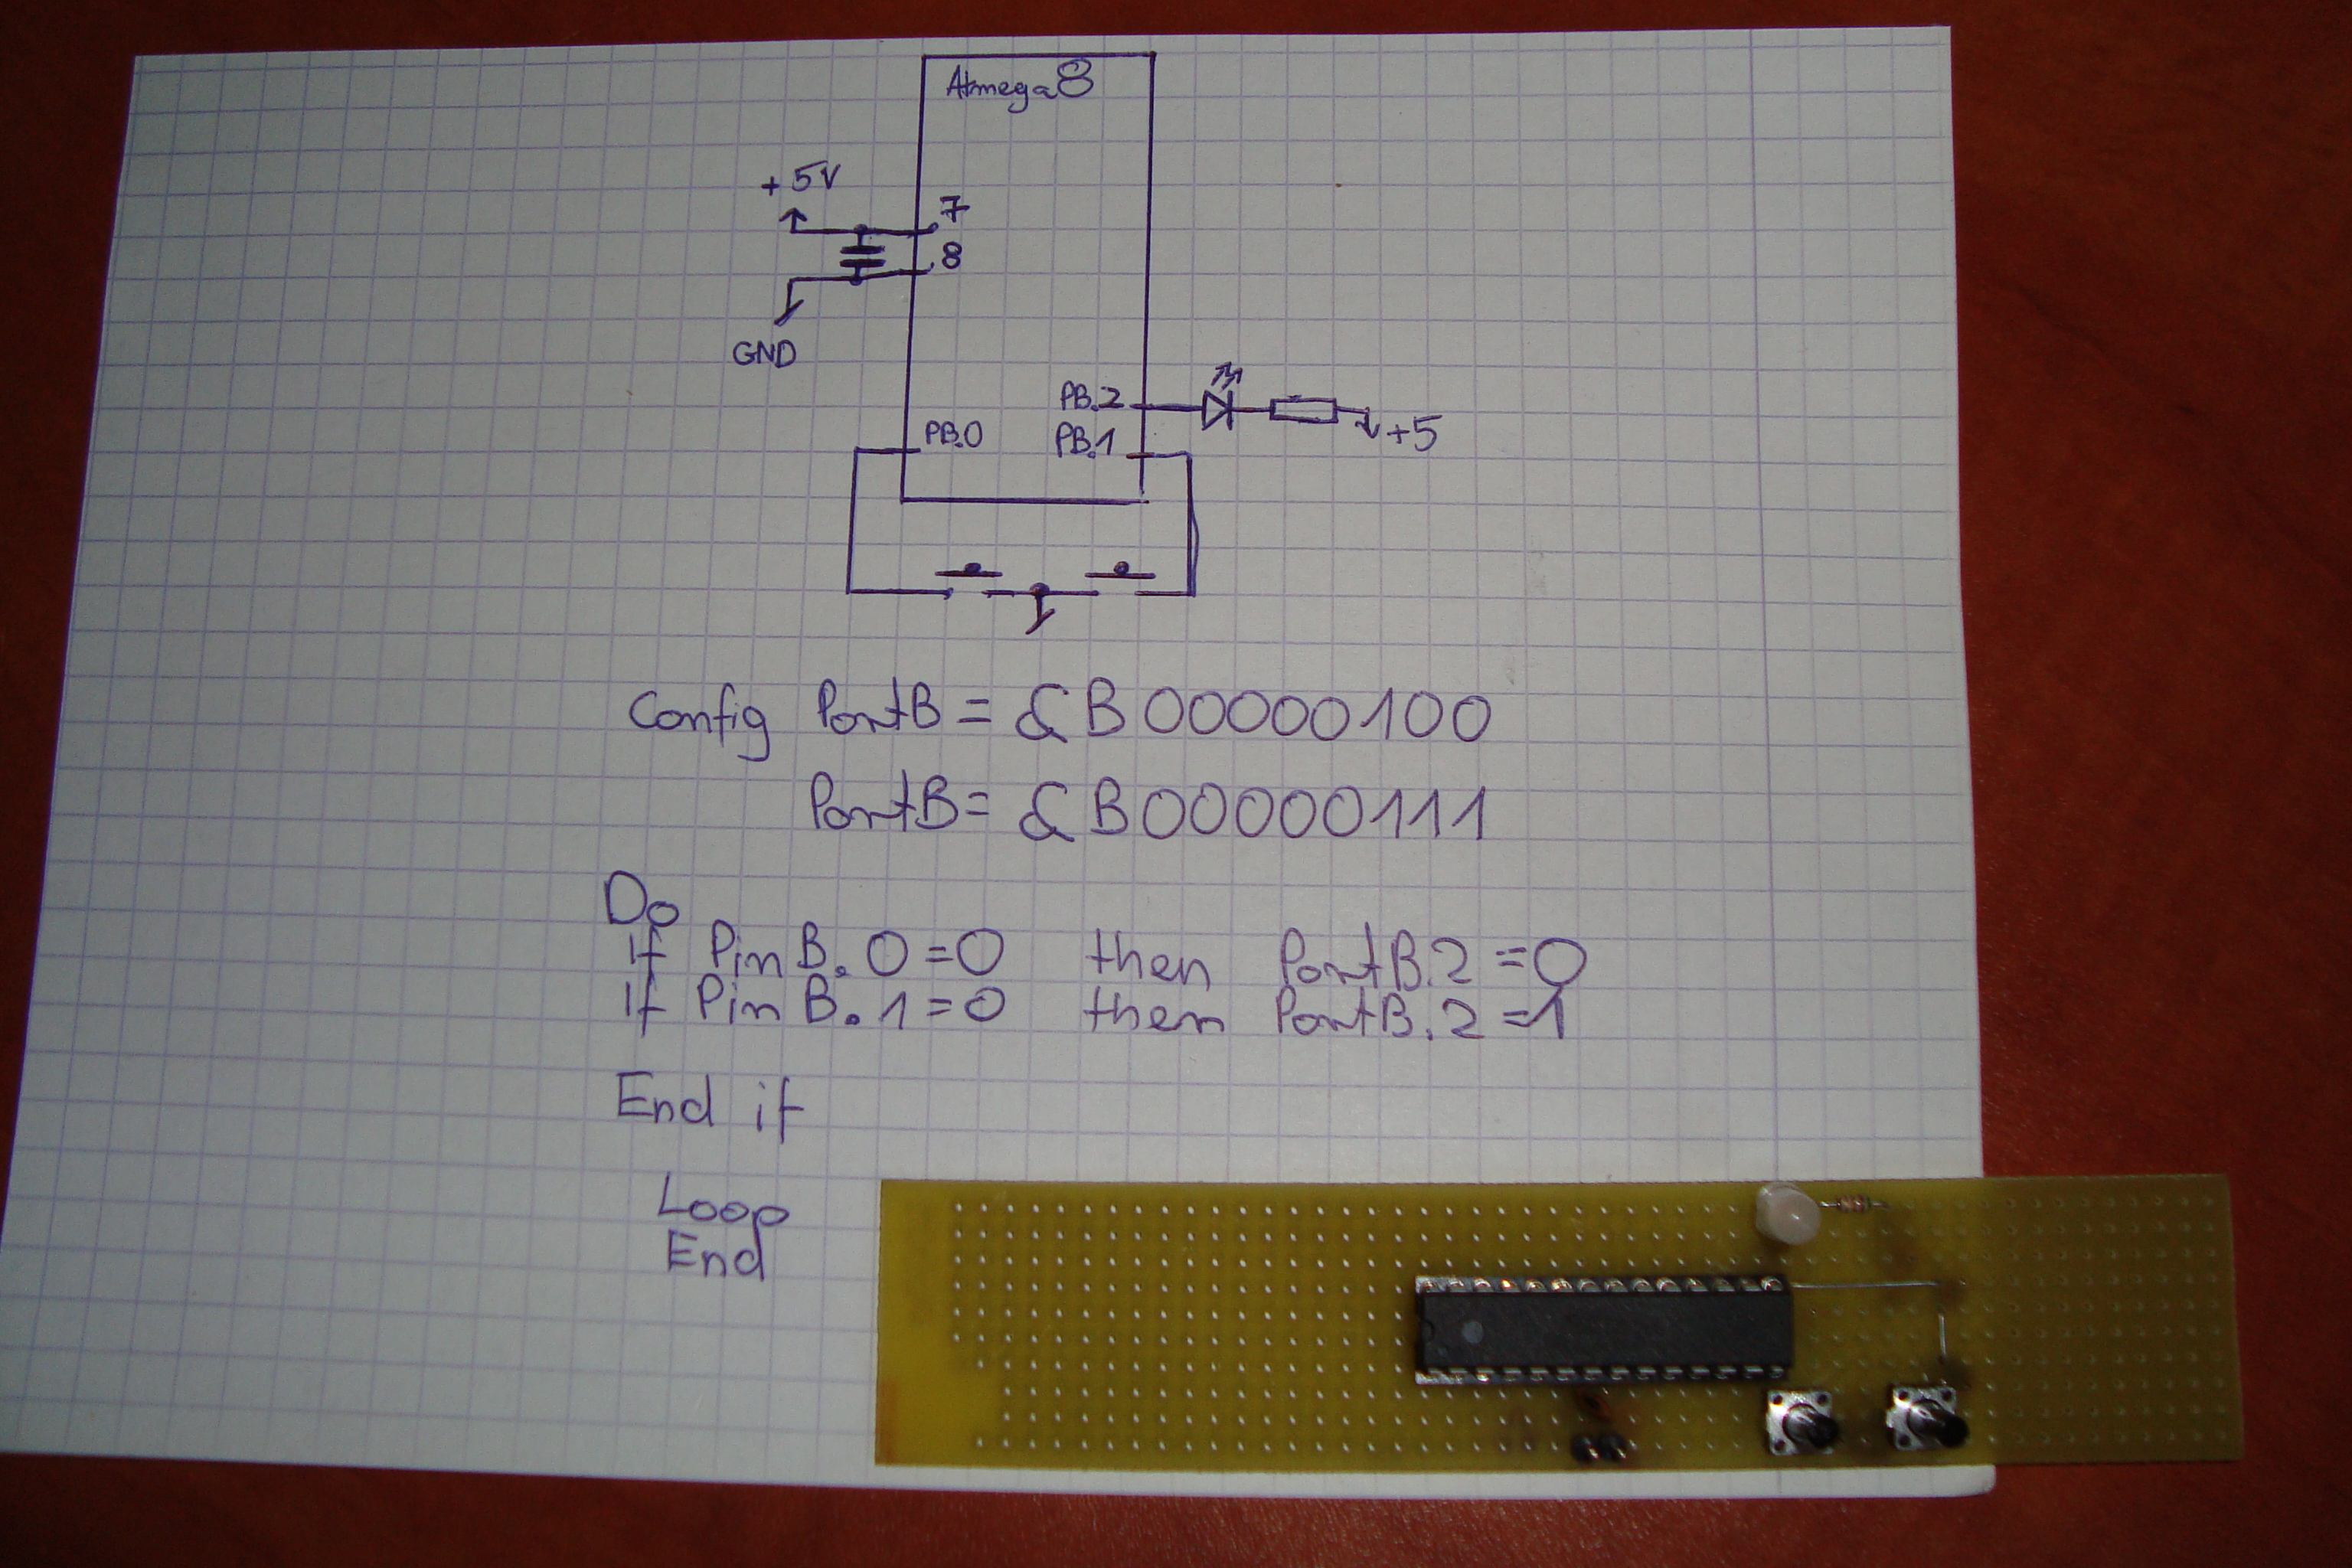 Atmega8
+5V
7
8
GND
PB.2
+5
PB.0
PB.1
Config PortB = &B00000100
PortB = &B00000111
Do
If PinB.0=0 then PortB.2=0
If PinB.1=0 then PortB.2=1
End if
Loop
End